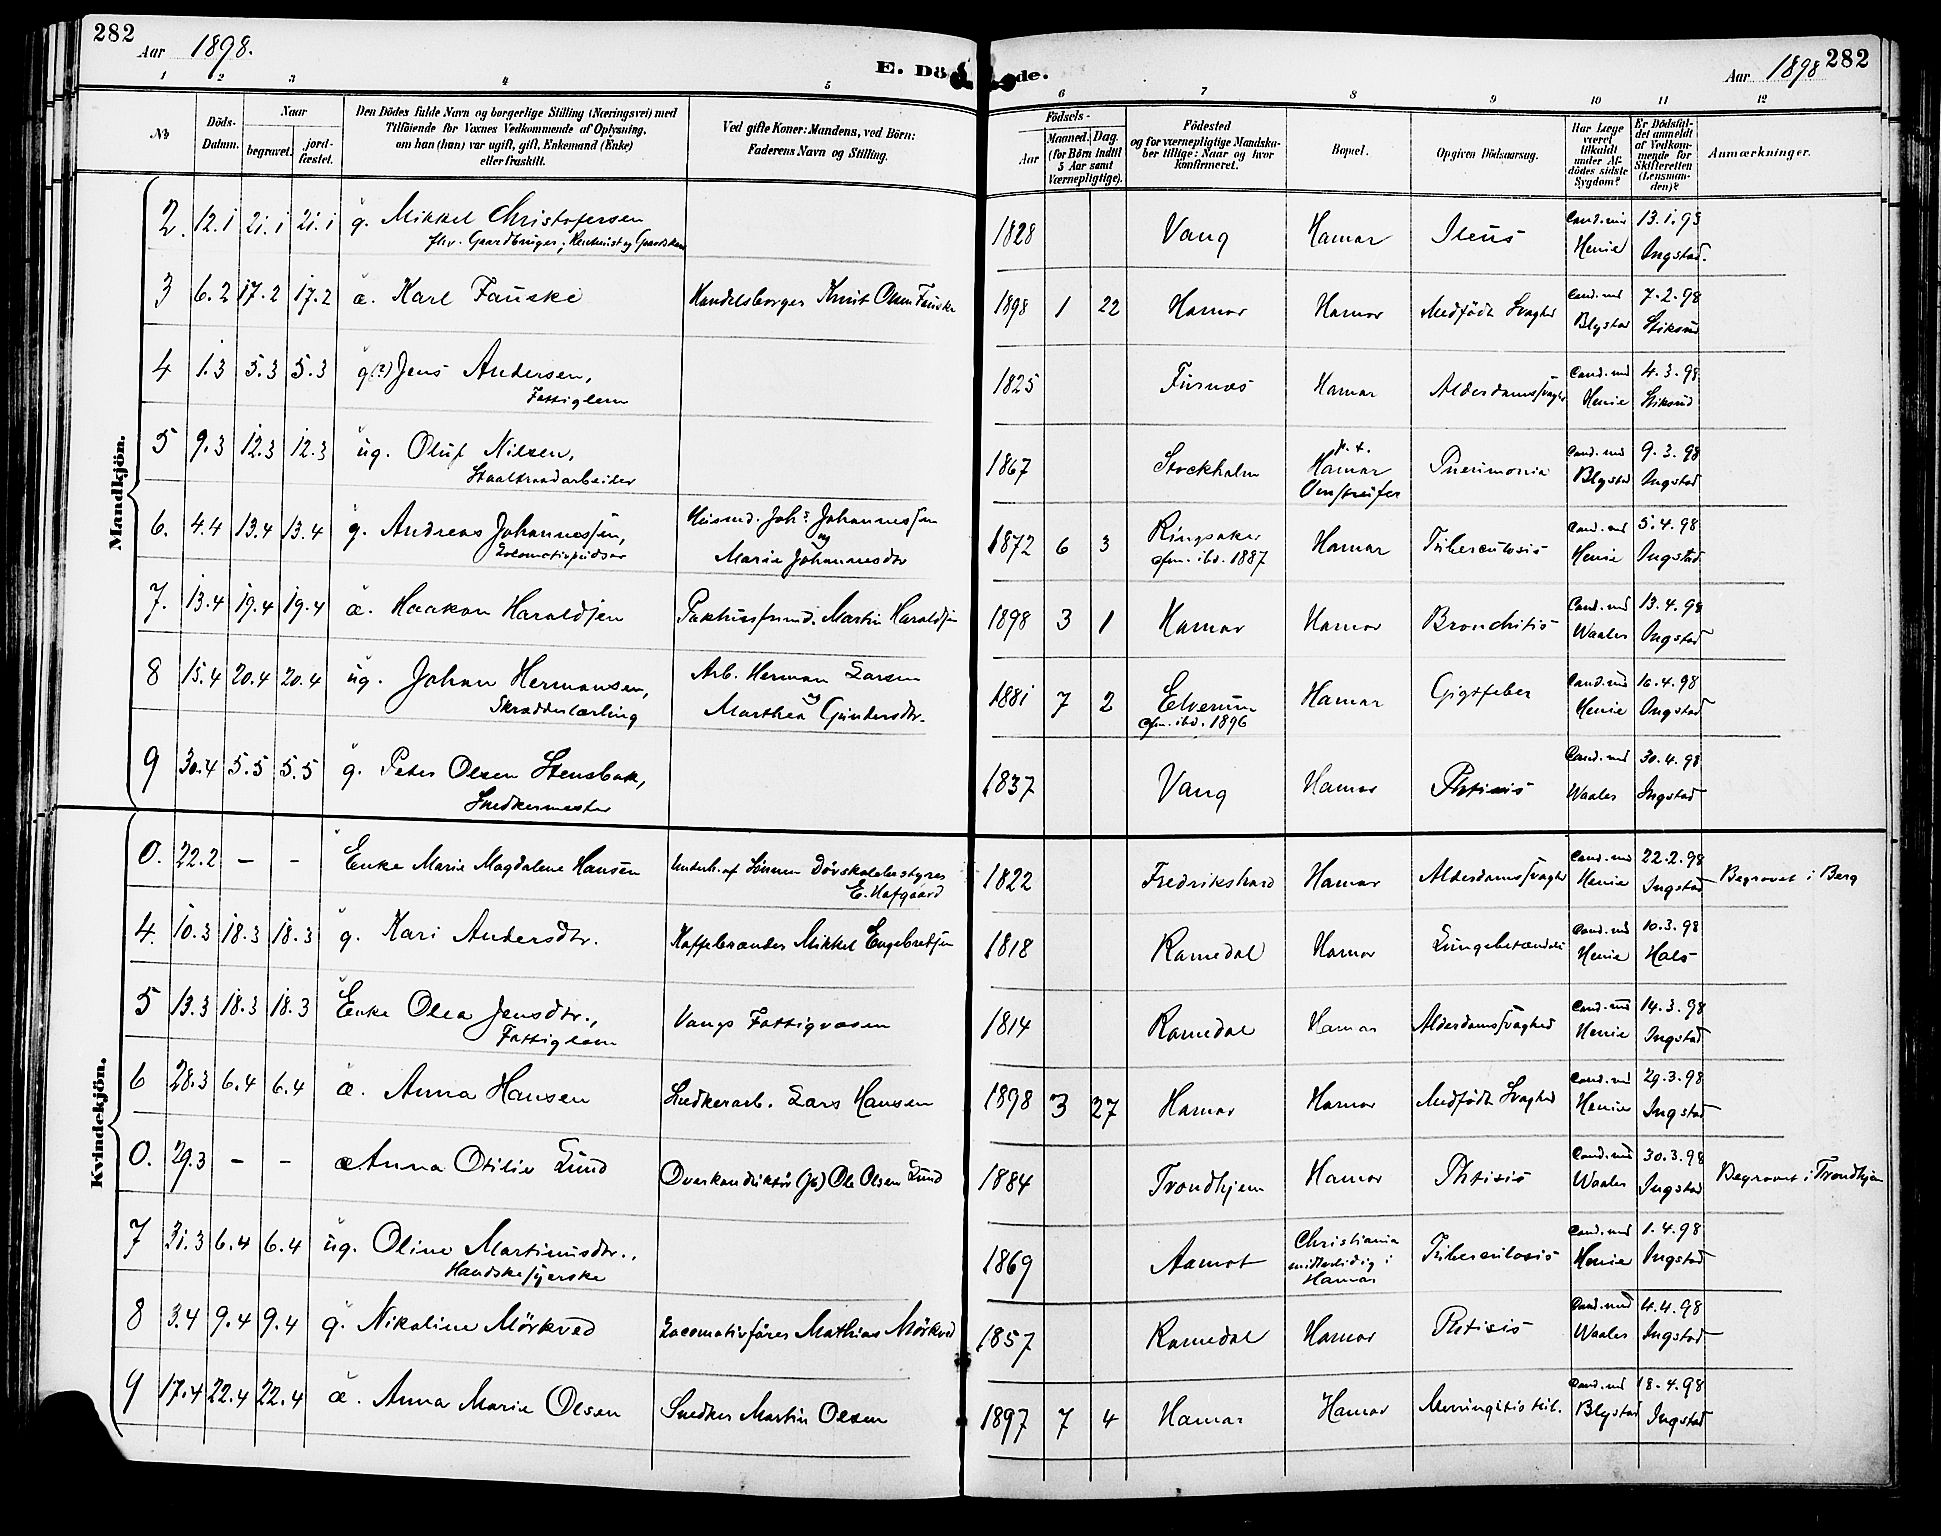 282
Aar 1898.
E. Dö de.
Aar 1898
282
1 2 3 4 5 6 7 8 9 10 11 12
No
Döds-Datum.
Naar
begravet.
jord-fæstet.
Den Dödes fulde Navn og borgerlige Stilling (Næringsvei) med
Tilföiende for Voxnes Vedkommende af Oplysning,
om han (hun) var ugift, gift, Enkemand (Enke)
eller fraskilt.
Ved gifte Koner: Mandens, ved Börn:
Faderens Navn og Stilling.
Födsels-
Aar
Maaned. Dag.
(for Börn indtil
5 Aar samt
Værnepligtige).
Födested
og for værnepligtige Mandska-
ber tillige: Naar og hvor
konfirmeret.
Bopæl.
Opgiven Dödsaarsag.
Har Læge
været
tilkaldt
under Af-
dödes sidste
Sygdom?
Er Dödsfal-
det anmeldt
af Vedkom-
mende for
Skifteretten
(Lensman-
den)?
Anmærkninger.
Mandkjön.
2. 12.1 21.1 21.1 g. Mikkel Christofersen 1828 Vang Hamar Ileus Cand. med Henie 13.1.98 Ingstad.
fhv. Gaardbruger,
3 6.2 17.2 17.2 æ. Karl Fauske Handelsborger Knut Olsen Fauske 1898 1 22 Hamar Hamar Medfödt Svaghed Cand. med Blystad 7.2.98 Stiksrud
4 1.3 5.3 5.3 g(?) Jens Andersen, 1825 Furnæs Hamar Alderdomssvaghed Cand. med Henie 4.3.98 Stiksrud
Fattiglem
5 9.3 12.3 12.3 ug. Oluf Nilsen, 1867 Stockholm p.t. Hamar Omstreifer Pneumonia Cand. med Blystad 9.3.98 Ingstad
Staaltraadarbeider
6. 4.4 13.4 13.4 g. Andreas Johannessen, Husmd. Johs. Johannessen og Marie Johannesdtr 1872 6 3 Ringsaker cfm. ibd. 1887 Hamar Tuberculosis Cand. med Henie 5.4.98 Ingstad
Locomotivpudser
7. 13.4 19.4 19.4 æ. Haakon Haraldsen Pakhusformd. Martin Haraldsen 1898 3 1 Hamar Hamar Bronchitis Cand. med Waaler 13.4.98 Ingstad
8 15.4 20.4 20.4 ug. Johan Hermansen, Arb. Herman Larsen og Marthea Gundersdtr. 1881 7 2 Elverum cfm. ibd. 1896 Hamar Gigtfeber Cand. med Henie 16.4.98 Ingstad
Skrædderlærling
9 30.4 5.5 5.5 g. Peter Olsen Stensbak, 1837 Vang Hamar Phtisis Cand. med Waaler 30.4.98 Ingstad
Snedkermester
Kvindekjön.
0. 22.2 - - Enke Marie Magdalene Hansen Underh. af Sönnen Dövskolebestyrer E. Hofgaard 1822 Fredrikshald Hamar Alderdomssvaghed Cand. med Henie 22.2.98 Ingstad Begravet i Berg
4. 10.3 18.3 18.3 g. Kari Andersdtr. Kaffebrænder Mikkel Engebretsen 1818 Romedal Hamar Lungebetændelse Cand. med Henie 10.3.98 Hals
5 13.3 18.3 18.3 Enke Olea Jensdtr., Vangs Fattigvæsen 1814 Romedal Hamar Alderdomssvaghed Cand. med Henie 14.3.98 Ingstad
Fattiglem
6 28.3 6.4 6.4 æ. Anna Hansen Snedkerarb. Lars Hansen 1898 3 27 Hamar Hamar Medfödt Svaghed Cand. med Henie 29.3.98 Ingstad
0. 29.3 - - æ Anna Otilie Lund Overkonduktör Ole Olsen Lund 1884 Trondhjem Hamar Phtisis Cand. med Waaler 30.3.98 Ingstad Begravet i Trondhjem
7 31.3 6.4 6.4 ug. Oline Martinusdtr., 1869 Aamot Christiania midlertidig i Hamar Tuberculosis Cand. med Henie 1.4.98 Ingstad
Handskesyerske
8 3.4 9.4 9.4 g. Nikoline Mörkved Locomotivförer Mathias Mörkved 1857 Romedal Hamar Phtisis Cand. med Waaler 4.4.98 Ingstad
9 17.4 22.4 22.4 æ. Anna Marie Olsen Snedker Martin Olsen 1897 7 4 Hamar Hamar Meningitis tub. Cand. med Blystad 18.4.98 Ingstad